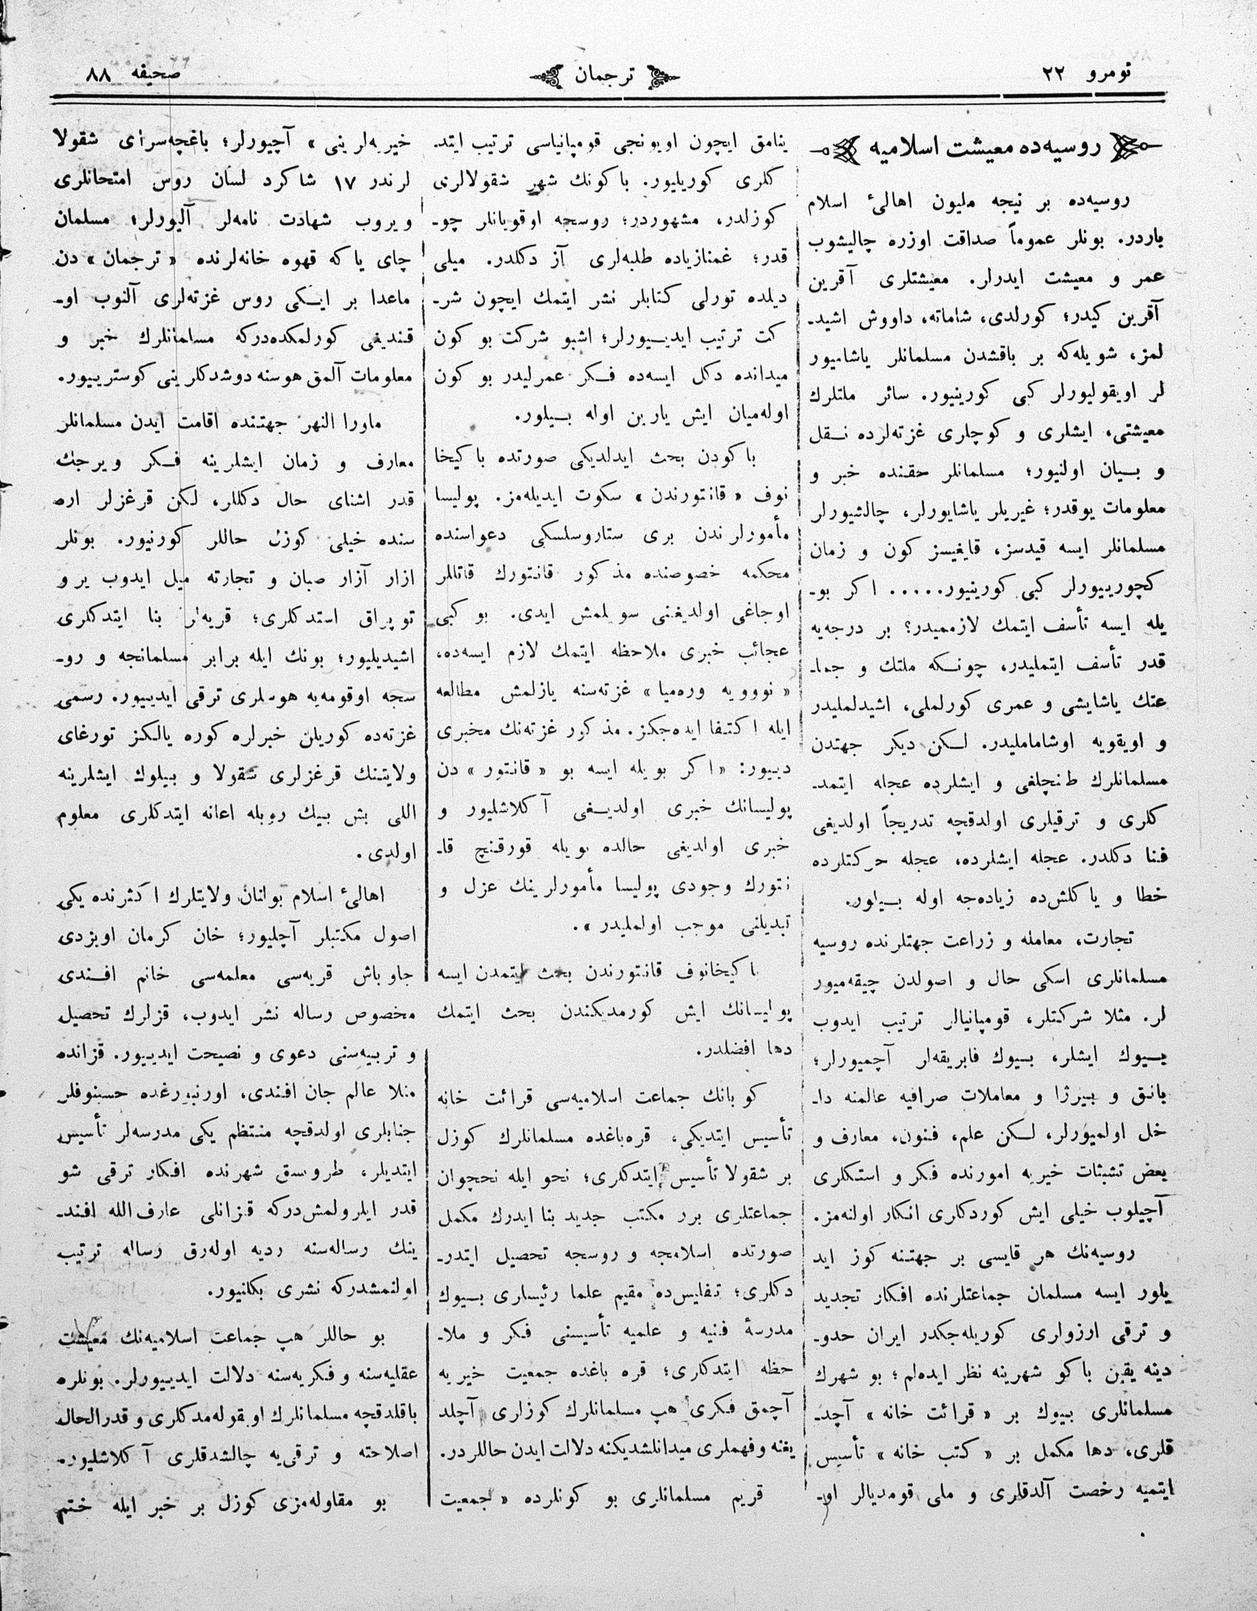 نومرو ٢٢
ترجمان
صحیفه ٨٨
روسیه‌ده معیشت اسلامیه
روسیه‌ده بر نیجه ملیون اهالیٔ اسلام
باردر. بونلر عموماً صداقت اوزره چالیشوب
عمر و معیشت ایدرلر. معیشتلری آقرین
آقرین کیدر؛ کورلدی، شاماته، داووش اشید-
لمز، شویله‌که بر باقشدن مسلمانلر یاشامیور
لر اویقولیورلر کبی کورینیور. سائر ملتلرك
معیشتی، ایشلری و کوچلری غزته‌لرده نقل
و بیان اولنیور؛ مسلمانلر حقنده خبر و
معلومات یوقدر؛ غیریلر یاشایورلر، چالشیورلر
مسلمانلر ایسه قیدسز، قایغیسز کون و زمان
کچورییورلر کبی کورینیور..... اکر بو-
یله ایسه تأسف ایتمك لازممیدر؟ بر درجه‌یه
قدر تأسف ایتملیدر، چونکه ملتك و جما-
عتك یاشایشی و عمری کورلملی، اشیدلملیدر
و اویقویه اوشاماملیدر. لکن دیکر جهتدن
مسلمانلرك طنچلغی و ایشلرده عجله ایتمد-
کلری و ترقیلری اولدقچه تدریجاً اولدیغی
فنا دکلدر. عجله ایشلرده، عجله حرکتلرده
خطا و یاکلش‌ده زیاده‌جه اوله بیلور.
تجارت، معامله و زراعت جهتلرنده روسیه
مسلمانلری اسکی حال و اصولدن چیقه‌میور
لر. مثلا شرکتلر، قومپانیالر ترتیب ایدوب
بیوك ایشلر، بیوك فابریقه‌لر آچمیورلر؛
بانق و بیرژا و معاملات صرافیه عالمنه دا-
خل اولمیورلر، لکن علم، فنون، معارف و
بعض تشبثات خیریه امورنده فکر و استکلری
آچیلوب خیلی ایش کوردکلری انکار اولنه‌مز.
روسیه‌نك هر قایسی بر جهتنه کوز اید
یلور ایسه مسلمان جماعتلرنده افکار تجدید
و ترقی ارزولری کوریله‌جکدر ایران حدو-
دینه یقین باکو شهرینه نظر ایده‌لم؛ بو شهرك
مسلمانلری بیوك بر «قرائت خانه» آچد-
قلری، دها مکمل بر «کتب خانه» تأسیس
ایتمیه رخصت آلدقلری و ملی قومدیالر او-
ینامق ایچون اویونجی قومپانیاسی ترتیب ایتد-
کلری کوریلیور. باکونك شهر شقولالری
کوزلدر، مشهوردر؛ روسچه اوقویانلر چو-
قدر؛ غمنازیاده طلبه‌لری آز دکلدر. میلی
دیلده تورلی کتابلر نشر ایتمك ایچون شر-
کت ترتیب ایدییورلر؛ اشبو شرکت بو کون
میدانده دکل ایسه‌ده فکر عمرلیدر بو کون
اوله‌میان ایش یارین اوله بیلور.
باکودن بحث ایدلدیکی صورتده باکیخا
نوف «قانتورندن» سکوت ایدیله‌مز. پولیسا
مأمورلرندن بری ستاروسلسکی دعواسنده
محکمه خصوصنده مذکور قانتورك قاتللر
اوجاغی اولدیغنی سویلمش ایدی. بو کبی
عجائب خبری ملاحظه ایتمك لازم ایسه‌ده،
«نووویه وره‌میا» غزته‌سنه یازلمش مطالعه
ایله اکتفا ایده‌جکز. مذکور غزته‌نك مخبری
دییور: «اکر بویله ایسه بو «قانتور» دن
پولیسانك خبری اولدیغی آکلاشلیور و
خبری اولدیغی حالده بویله قورقنچ قا-
نتورك وجودی پولیسا مأمورلرینك عزل و
تبدیلنی موجب اولملیدر».
باکیخانوف قانتورندن بحث ایتمدن ایسه
پولیسانك ایش کورمدیکندن بحث ایتمك
دها افضلدر.
کوبانك جماعت اسلامیه‌سی قرائت خانه
تأسیس ایتدیکی، قره‌باغده مسلمانلرك کوزل
بر شقولا تأسیس ایتدکلری؛ نحو ایله نحچوان
جماعتلری برر مکتب جدید بنا ایدرك مکمل
صورتده اسلامجه و روسجه تحصیل ایتدر-
دکلری؛ تفلیس‌ده مقیم علما رئیسلری بیوك
مدرسهٔ فنیه و علمیه تأسیسنی فکر و ملا-
حظه ایتدکلری؛ قره باغده جمعیت خیریه
آچمق فکری هپ مسلمانلرك کوزلری آچلد
یغنه و فهملری میدانلشدیکنه دلالت ایدن حاللردر.
قریم مسلمانلری بو کونلرده «جمعیت
خیریه‌لرینی» آچیورلر؛ باغچه‌سرای شقولا
لرندر ١٧ شاکرد لسان روس امتحانلری
ویروب شهادت نامه‌لر آلیورلر؛ مسلمان
چای یاکه قهوه خانه‌لرنده «ترجمان» دن
ماعدا بر ایکی روس غزته‌لری آلنوب او-
قندیغی کورلمکده‌درکه مسلمانلرك خبر و
معلومات آلمق هوسنه دوشدکلرینی کوسترییور.
ماورا النهر جهتنده اقامت ایدن مسلمانلر
معارف و زمان ایشلرینه فکر ویرجك
قدر اشنای حال دکللر، لکن قرغزلر اره
سنده خیلی کوزل حاللر کورنیور. بونلر
ازار آزار صبان و تجارته میل ایدوب یر و
توپراق استدکلری؛ قریه‌لر بنا ایتدکلری
اشیدیلیور؛ بونك ایله برابر مسلمانجه و رو-
سجه اوقومه‌یه هوسلری ترقی ایدییور. رسمی
غزته‌ده کوریلن خبرلره کوره یالکز تورغای
ولایتینك قرغزلری شقولا و بیلوك ایشلرینه
اللی بش بیك روبله اعانه ایتدکلری معلوم
اولدی.
اهالیٔ اسلام بولنان ولایتلرك اکثرنده یکی
اصول مکتبلر آچلیور؛ خان کرمان اویزدی
جاوباش قریه‌سی معلمه‌سی خانم افندی
مخصوص رساله نشر ایدوب، قزلرك تحصیل
و تربیه‌سنی دعوی و نصیحت ایدییور. قزانده
منلا عالم جان افندی، اورنبورغده حسینوفلر
جنابلری اولدقچه منتظم یکی مدرسه‌لر تأسیس
ایتدیلر، طروسق شهرنده افکار ترقی شو
قدر ایلرولمش‌درکه قزانلی عارف‌الله افند-
ینك رساله‌سنه ردیه اوله‌رق رساله ترتیب
اولنمشدرکه نشری بکلنیور.
بو حاللر هپ جماعت اسلامیه‌نك معیشت
عقلیه‌سنه و فکریه‌سنه دلالت ایدییورلر. بونلره
باقلدقچه مسلمانلرك اویقوله‌مدکلری و قدرالحال
اصلاحته و ترقی‌یه چالشدقلری آکلاشلیور.
بو مقاوله‌مزی کوزل بر خبر ایله ختم